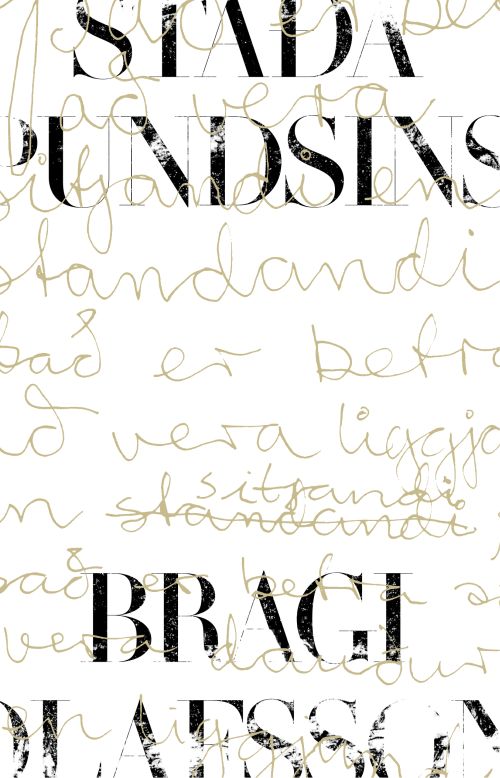 það er be
STAÐA
að vera
PUNDSINS
sitjandi en
standandi
það er betra
að vera liggja
sitjandi
en standandi
það er betra a
BRAGI
vera dauður
ÓLAFSSON
en liggjandi